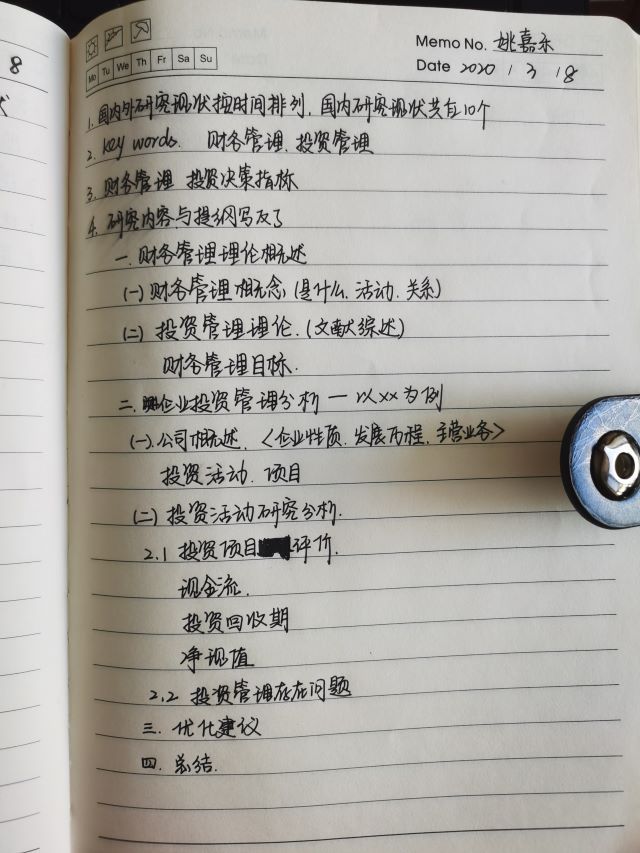 8
Memo No. 姚嘉乐
Mo Tu We Th Fr Sa Su
Date 2020 / 3 / 8
1. 国内外研究现状按时间排列, 国内研究现状共有10个
2. key words. 财务管理. 投资管理
3. 财务管理 投资决策指标
4. 研究内容与提纲写反了
一. 财务管理理论概述
(一) 财务管理概念 (是什么. 活动. 关系)
(二) 投资管理理论. (文献综述)
财务管理目标.
二. 企业投资管理分析 — 以xx为例
(一). 公司概述. <企业性质. 发展历程. 主营业务>
投资活动. 项目
(二) 投资活动研究分析.
2.1 投资项目评价.
现金流.
投资回收期
净现值
2.2 投资管理存在问题
三. 优化建议
四. 总结.